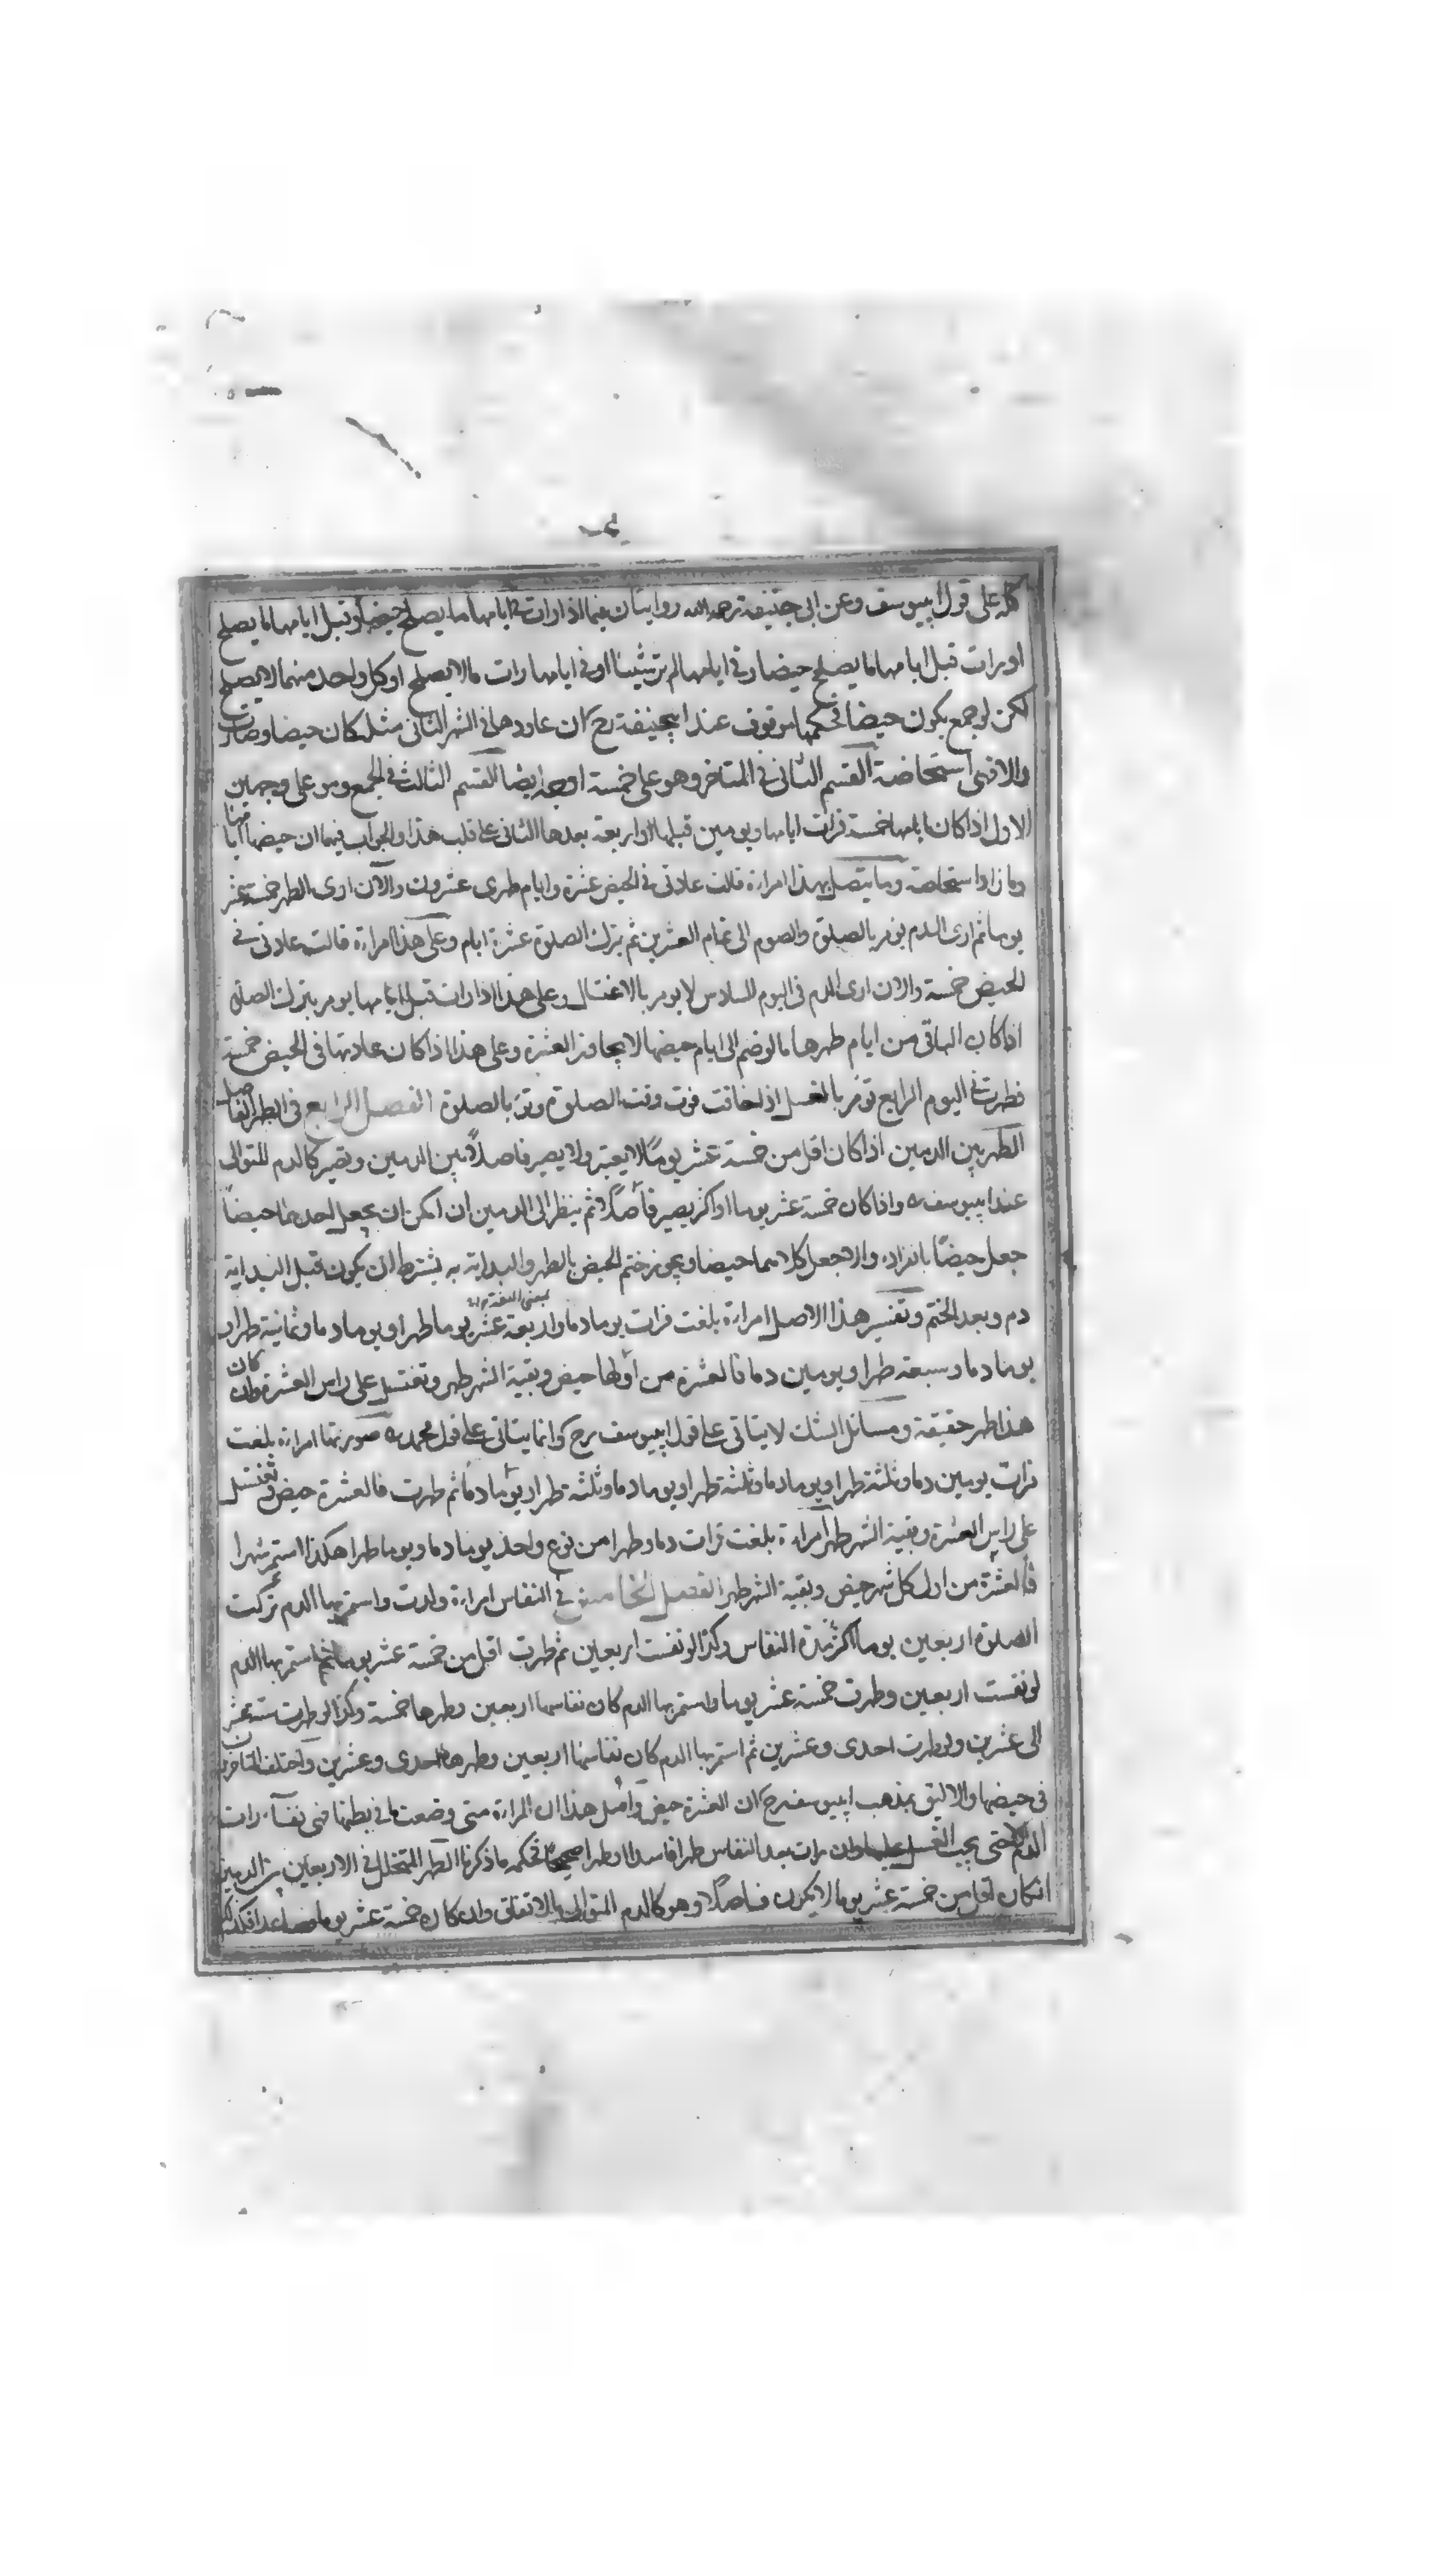 كله على قول ابيوسف وعن ابى حنيفة رحمه الله روايتان فيما اذا رات فى ايامها ما يصلح حيضا وقبل ايامها ما يصلح
او رات قبل ايامها ما يصلح حيضا وفى ايامها لم تر شيئا او فى ايامها رات ما لا يصلح او كل واحد منهما لا يصلح
لكن لو جمع يكون حيضا فحكمها موقوف عند ابيحنيفة رح ان عاودها فى الشهر الثانى مثله كان حيضا وصارت
والا فهى استحاضة القسم الثانى فى المتاخر وهو على خمسة اوجه ايضا القسم الثالث فى الجمع وهو على وجهين
الاول اذا كان ايامها خمسة فرات ايامها ويومين قبلها او اربعة بعدها الثانى على قلب هذا والجواب فيهما ان حيضها ايامها
وما زاد استحاضة وما يتصل بهذا امراءة قالت عادتى فى الحيض عشرة وايام طهرى عشرون والآن ارى الطهر خمسة عشر
يوما ثم ارى الدم يومر بالصلوة والصوم الى تمام العشرين ثم يترك الصلوة عشرة ايام وعلى هذا امراءة قالت عادتى فى
الحيض خمسة والان ارى الدم فى اليوم السادس لا يومر بالاغتسال وعلى هذا اذا رات قبل ايامها يومر بترك الصلوة
اذا كان الباقى من ايام طهرها ما لو ضم الى ايام حيضها لا يجاوز العشرة وعلى هذا اذا كان عادتها فى الحيض خمسة
فطهرت فى اليوم الرابع تومر بالغسل اذا خافت فوت وقت الصلوة وتومر بالصلوة الفصل الرابع فى الطهر الفاصل
الطهر بين الدمين اذا كان اقل من خمسة عشر يوما لا يعتبر ولا يصير فاصلا بين الدمين ويصير كالدم المتوالى
عند ابيوسف واذا كان خمسة عشر يوما او اكثر يصير فاصلا ثم ينظر الى الدمين ان امكن ان يجعل احدهما حيضا
جعل حيضا بانفراده والا جعل كلاهما حيضا ويجوز ختم الحيض بالطهر والبداية به بشرط ان يكون قبل البداية
دم وبعد الختم وتفسير هذا الاصل امراءة بلغت فرات يوما دما واربعة عشر يوما طهرا ويوما دما وثمانية طهرا و
يوما دما وسبعة طهرا ويومين دما فالعشرة من اولها حيض وبقية الشهر طهر وتغتسل على راس العشرة وان كان
هذا طهر حقيقة ومسائل الشك لا يتاتى على قول ابيوسف رح وانما يتاتى على قول محمد صورتها امراءة بلغت
فرات يومين دما وثلثة طهرا ويوما دما وثلثة طهرا ويوما دما وثلثة طهرا ويوما دما ثم طهرت فالعشرة حيض وتغتسل
على راس العشرة وبقية الشهر طهر امراءة بلغت فرات دما وطهرا من نوع واحد يوما دما ويوما طهرا هكذا استمر شهرا
فالعشرة من اول كل شهر حيض وبقية الشهر طهر الفصل الخامس فى النفاس امراءة ولدت واستمر بها الدم تركت
الصلوة اربعين يوما اكثر مدة النفاس وكذا لو نفست اربعين ثم طهرت اقل من خمسة عشر يوما ثم استمر بها الدم
لو نفست اربعين وطهرت خمسة عشر يوما واستمر بها الدم كان نفاسها اربعين وطهرها خمسة وكذا لو طهرت ستة عشر
الى عشرين ولو طهرت احدى وعشرين ثم استمر بها الدم كان نفاسها اربعين وطهرها احدى وعشرين واختلف المتاخرون
فى حيضها والاليق بمذهب ابيوسف رح ان العشرة حيض واصل هذا ان المراءة متى وضعت ما فى بطنها فهى نفساء رات
الدم حتى يجب الغسل عليها وان رات بعد النفاس طهرا فاسدا او طهرا صحيحا فحكمه ما ذكرنا الطهر المتخلل فى الاربعين بين الدمين
ان كان اقل من خمسة عشر يوما لا يكون فاصلا وهو كالدم المتوالى بالاتفاق وان كان خمسة عشر يوما فصاعدا فكذلك